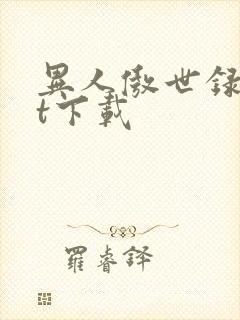 異人傲世録
t下載
羅睿鐸